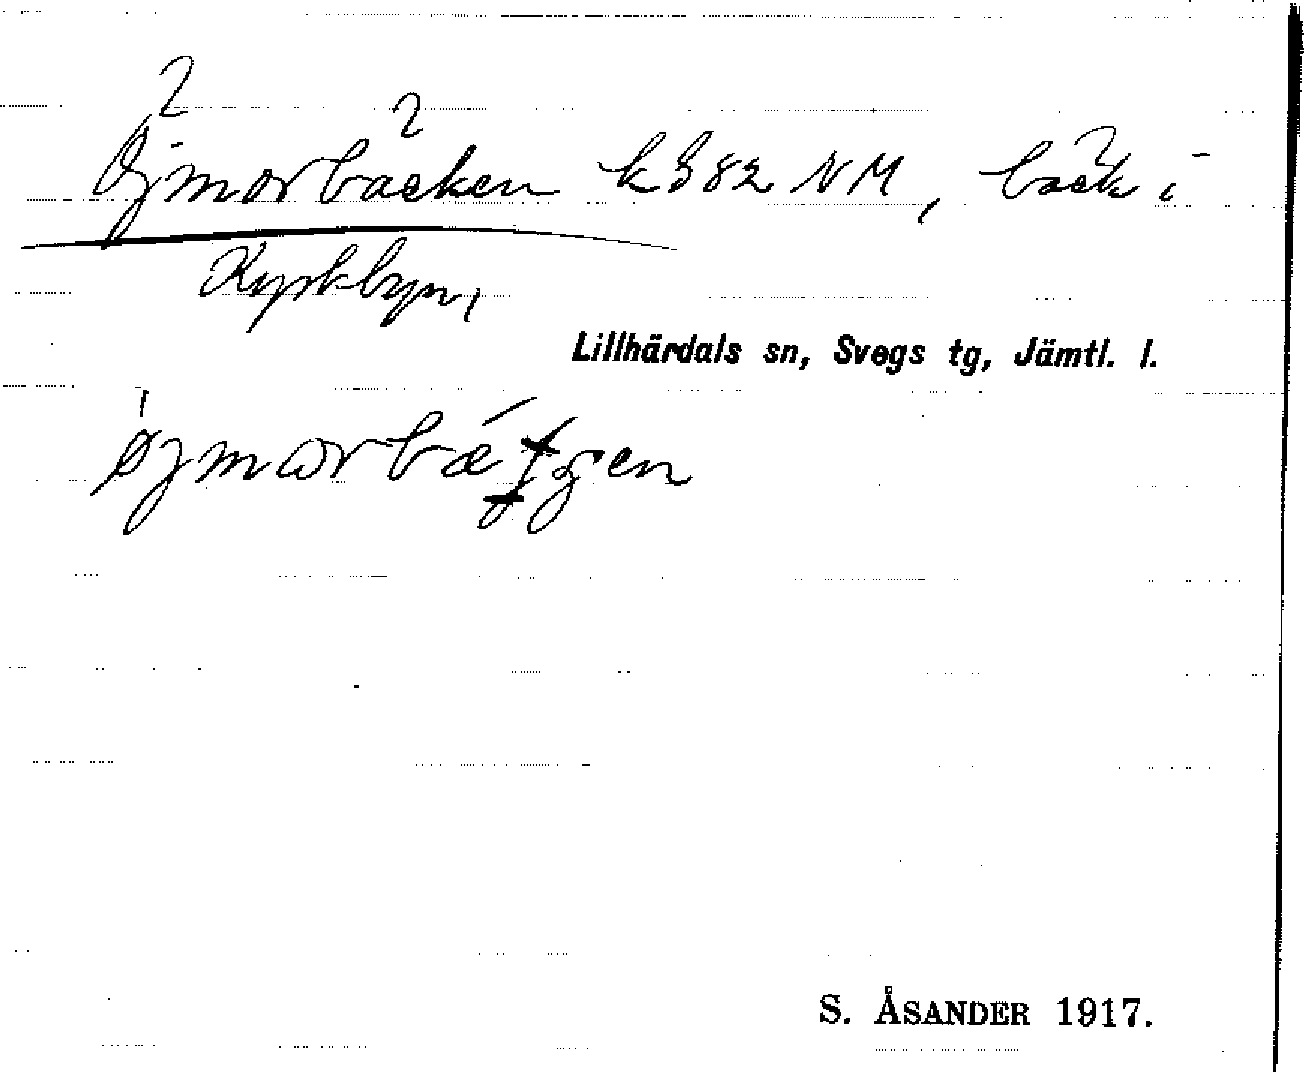 Öjmorbäcken k382 NM, bäck i
Kyrkbyn,
Lillhärdals sn, Svegs tg, Jämtl. l.
S. ÅSANDER 1917.